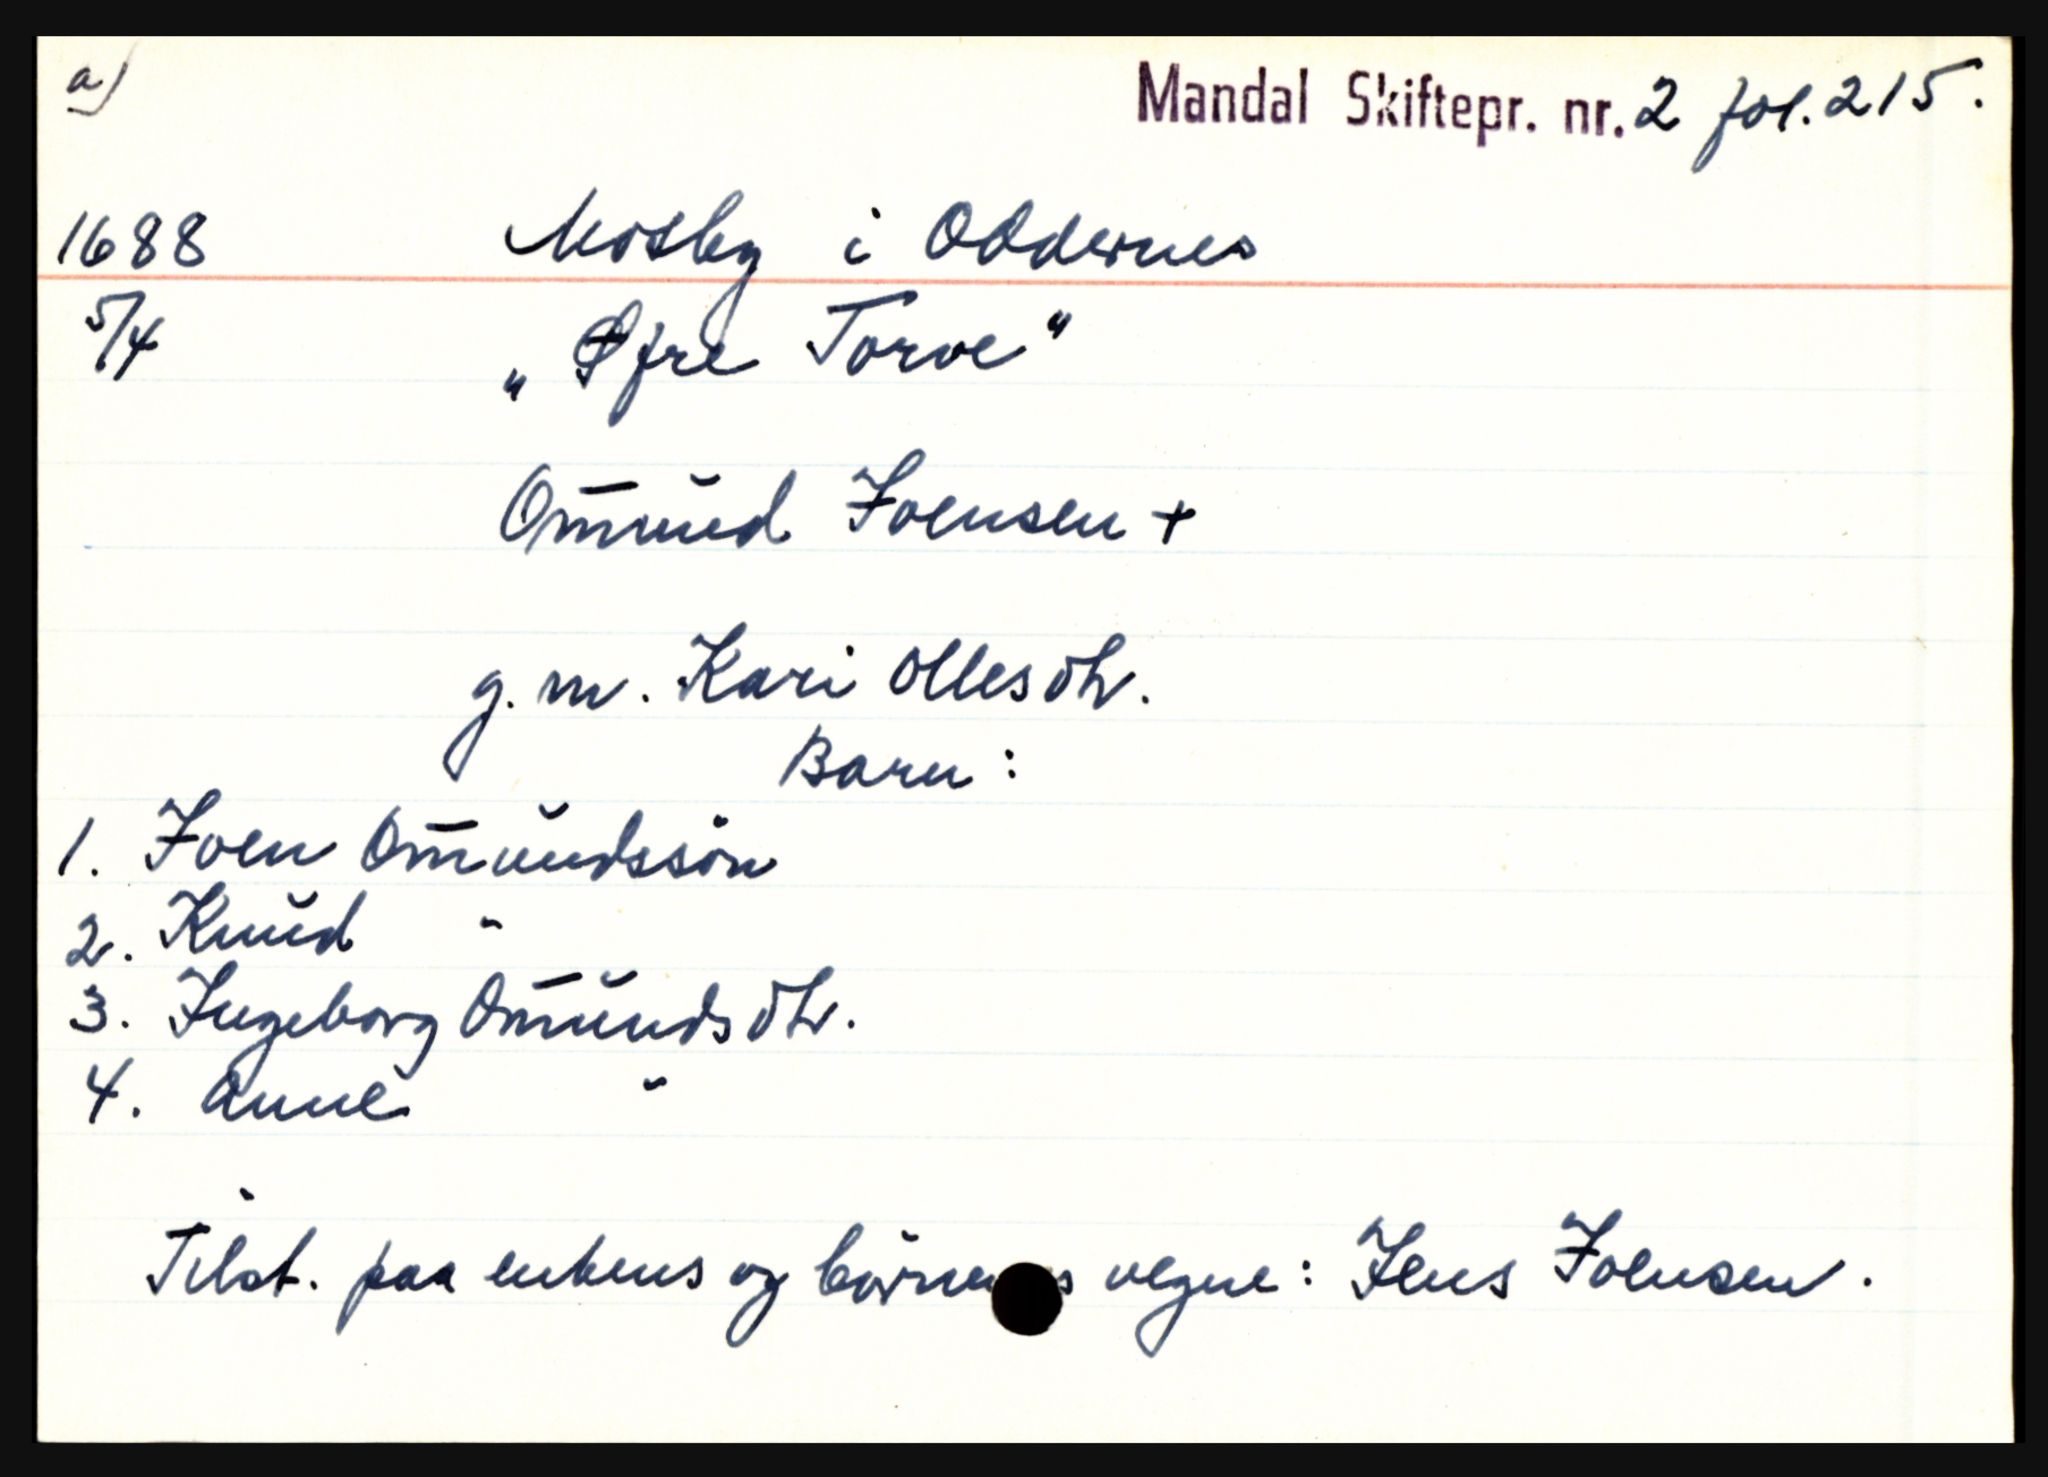 a)
Mandal Skiftepr. nr. 2 fol. 215.
1688 Mosby i Oddernes
5/4 „Øfre Torve"
Om̅ŭnd Joensen +
g. m. Kari Ollesdtr.
Barn :
1. Joen Om̅ŭndssön
2. Knŭd "
3. Ingeborg Om̅ŭndsdtr.
4. Anne "
Tilst. paa enkens og börnenes vegne : Jens Joensen .